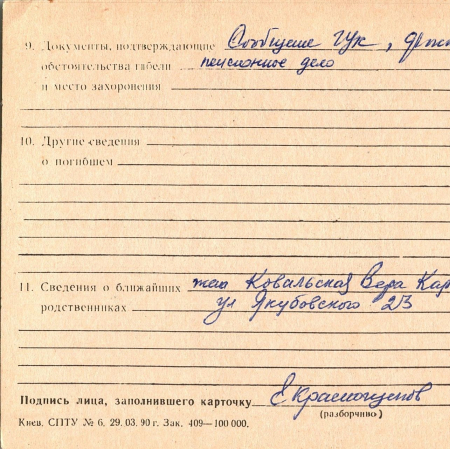 9. Документы, подтверждающие Сообщение ГУК,
обстоятельства гибели пенсионное дело
и место захоронения
10. Другие сведения
о погибшем
11. Сведения о ближайших жена Ковальская Вера Кар
родственниках ул Якубовского 23
Подпись лица, заполнившего карточку
(разборчиво)
Киев. СПТУ № 6. 29. 03. 90 г. Зак. 409—100 000.